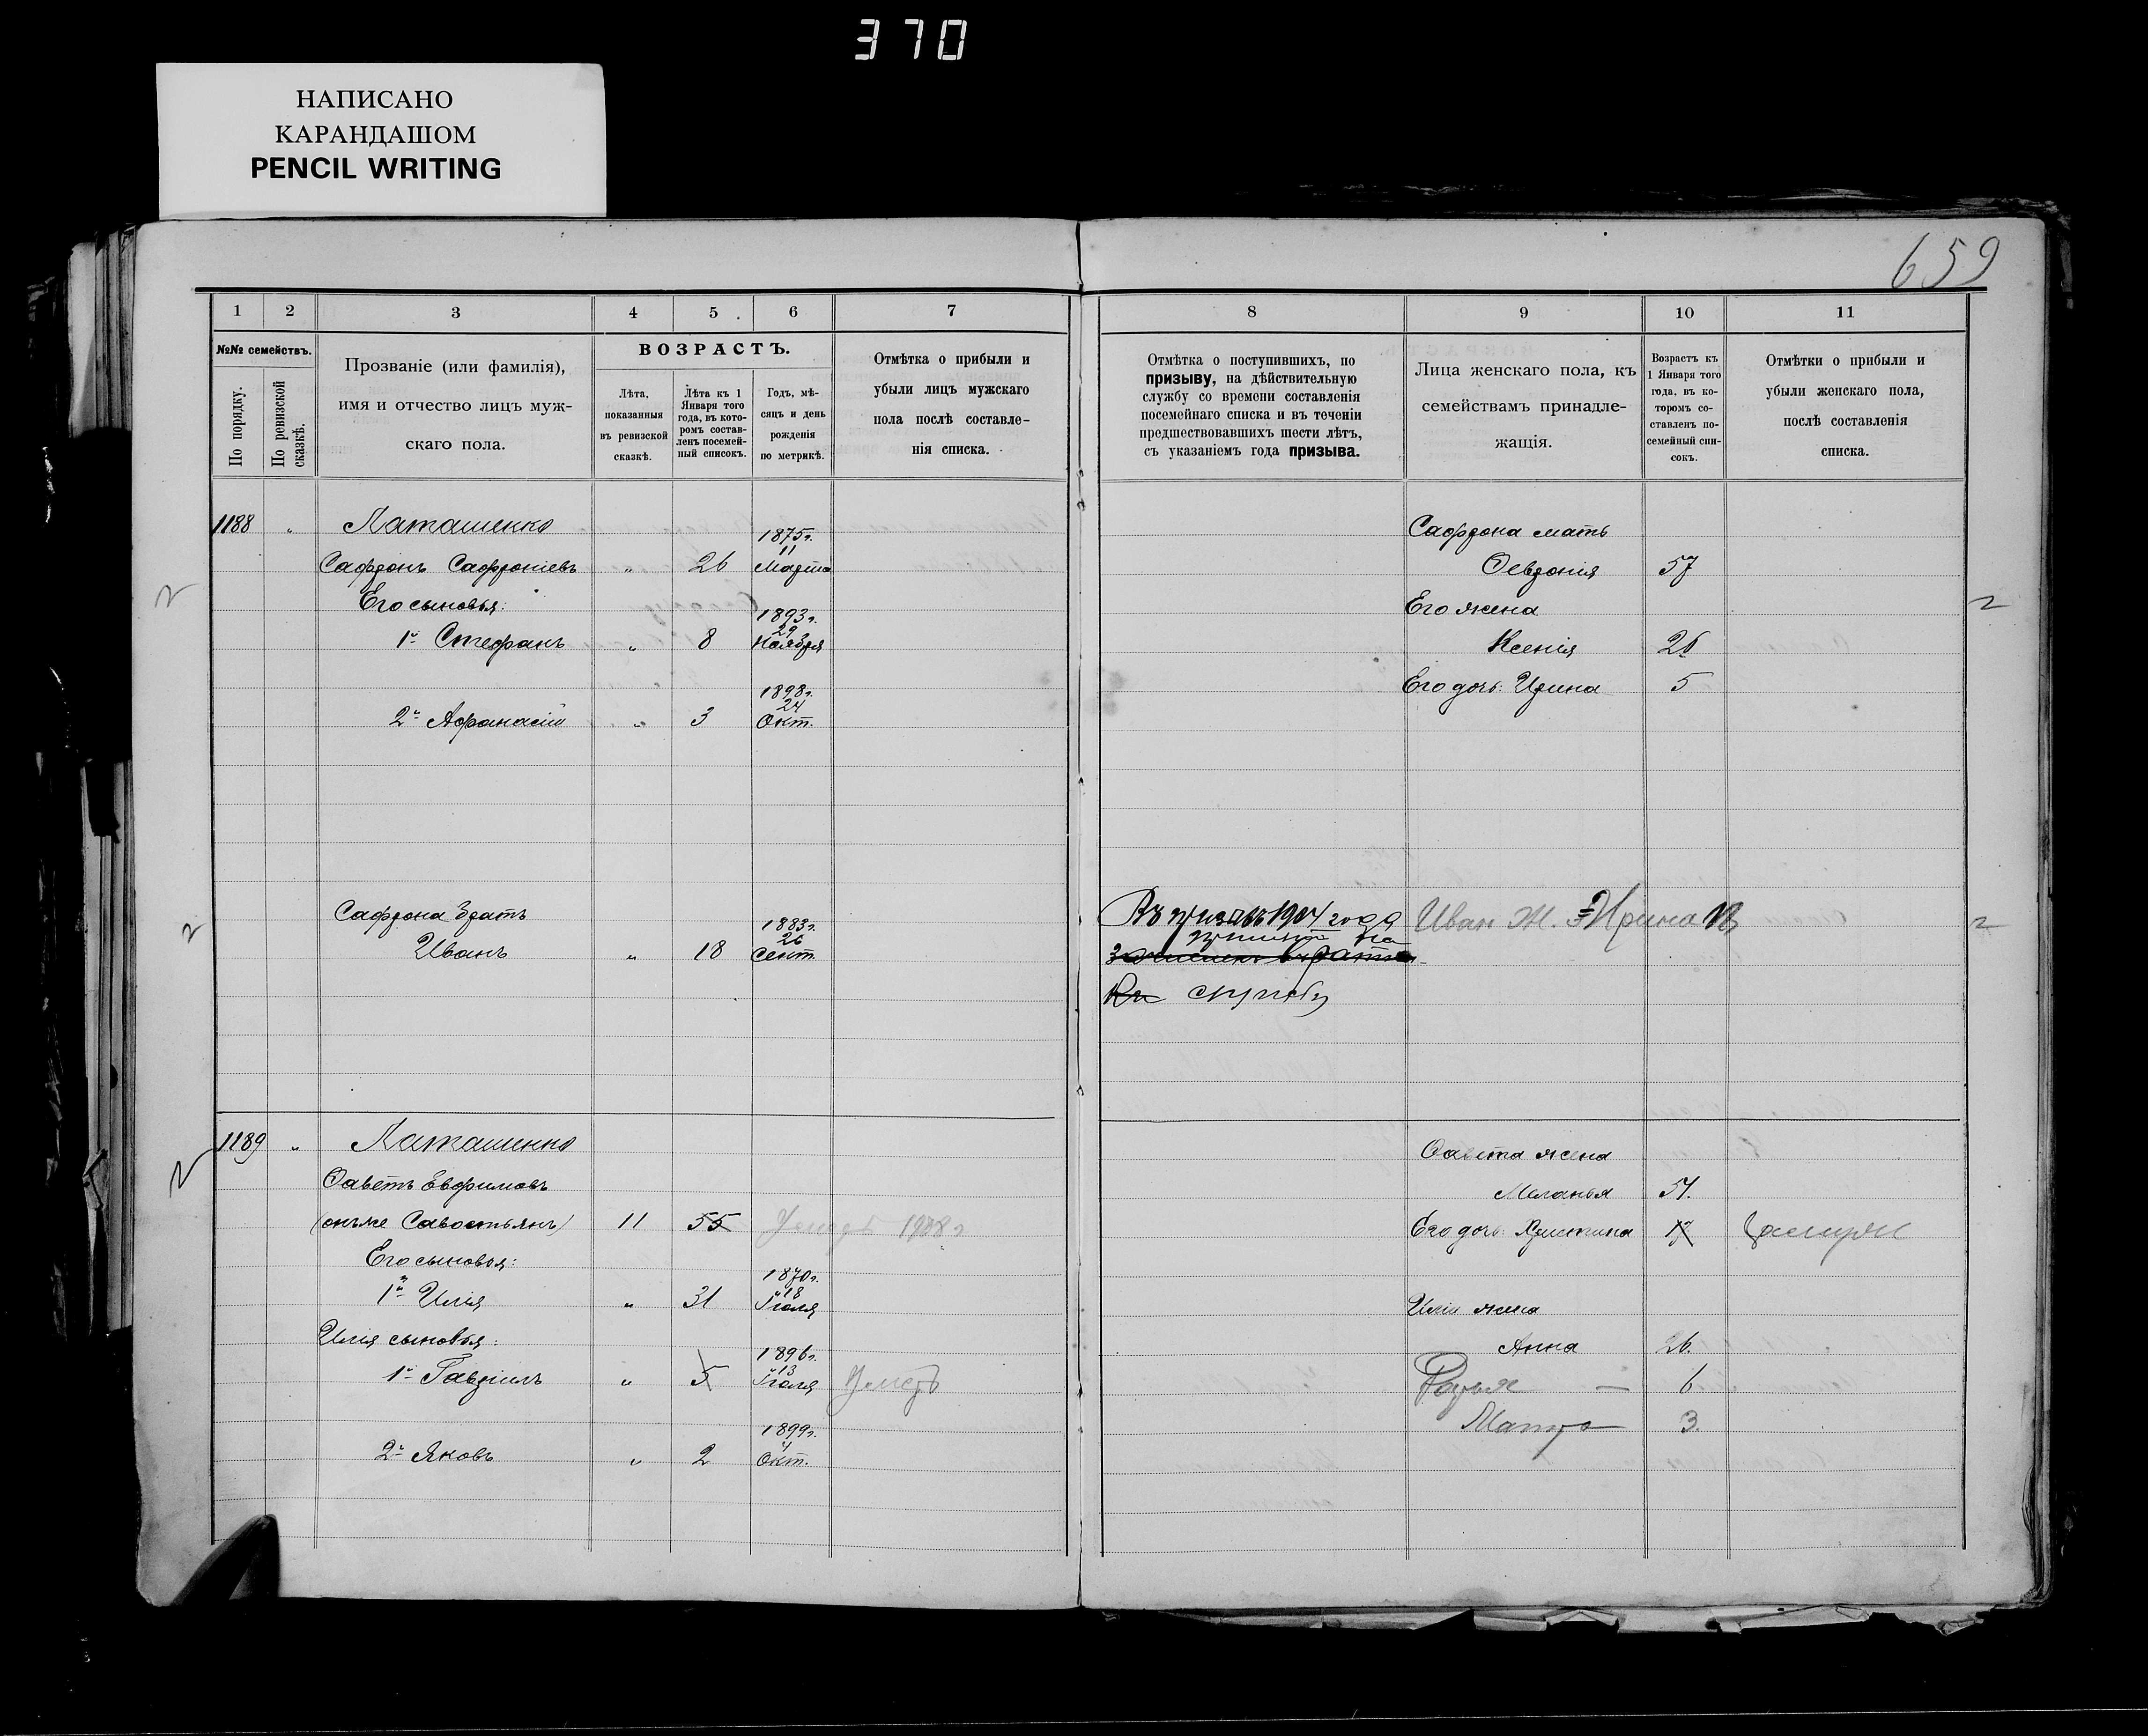 370
НАПИСАНО
КАРАНДАШОМ
PENCIL WRITING
659
1 2 3 4 5 6 7
№№ семействъ.
По порядку.
По ревизской сказкѣ.
Прозваніе (или фамилія),
имя и отчество лицъ муж-
скаго пола.
ВОЗРАСТЪ.
Лѣта,
показанныя
въ ревизской
сказкѣ.
Лѣта къ 1
Января того
года, въ кото-
ромъ состав-
ленъ посемей-
ный списокъ.
Годъ, мѣ-
сяцъ и день
рожденія
по метрикѣ.
Отмѣтка о прибыли и
убыли лицъ мужскаго
пола послѣ составле-
нія списка.
1188 " Каташенко
1875г.
11
Сафронъ Сафроніевъ " 26 Марта
Его сыновья:
1893г.
29
1й Стефанъ " 8 Ноября
1898г.
24
2й Афанасій " 3 Окт.
Сафрона братъ
1883г.
26
Иванъ " 18 Сент.
1189 " Каташенко
Саветъ Евфимовъ
(онъ же Савостьянъ) 11 55 Умеръ 1908г
Его сыновья:
1870г.
18
1й Илія " 31 Іюля
Илія сыновья:
1896г.
13
1й Гавріилъ " 5 Іюля Умеръ
1899г.
4
2й Яковъ " 2 Окт.
8 9 10 11
Отмѣтка о поступившихъ, по
призыву, на дѣйствительную
службу со времени составленія
посемейнаго списка и въ теченіи
предшествовавшихъ шести лѣтъ,
съ указаніемъ года призыва.
Лица женскаго пола, къ
семействамъ принадле-
жащія.
Возрастъ къ
1 Января того
года, въ ко-
торомъ со-
ставленъ по-
семейный спи-
сокъ.
Отмѣтки о прибыли и
убыли женскаго пола,
послѣ составленія
списка.
Сафрона мать
Февронія 57
Его жена
Ксенія 26
Его дочь: Ирина 5
Въ призывъ 1904 года Иван Ж. Ирина
принятъ на
службу
Савета жена
Меланья 51.
Его дочь: Христина 17 Замуж
Иліи жена
Анна 26.
6
3.